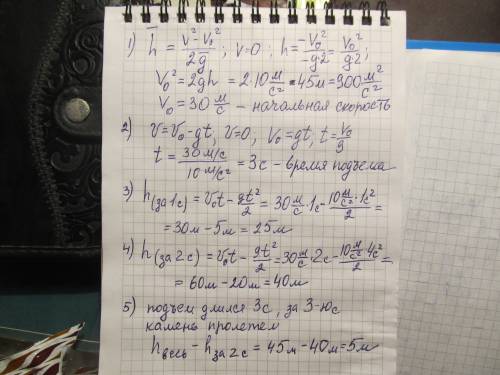 1) h̅ = (v² - v₀²)/(2g̅) ; v=0 ; h = (-v₀²)/(-g·2) = v₀²/(g·2) ;
v₀² = 2gh = 2·10 м/с² · 45м = 900 м²/с²
v₀ = 30 м/с - начальная скорость
2) v = v₀ - gt, v=0, v₀ = gt, t = v₀/g
t = (30 м/с)/(10 м/с²) = 3с - время подъема
3) h(за 1с) = v₀t - gt²/2 = 30 м/с · 1с - (10 м/с² · 1с²)/2 =
= 30м - 5м = 25м
4) h(за 2с) = v₀t - gt²/2 = 30 м/с · 2с - (10 м/с² · 4с²)/2 =
= 60м - 20м = 40м
5) подъем длился 3с, за 3-ю с
камень пролетел
hвесь - hза 2с = 45м - 40м = 5м